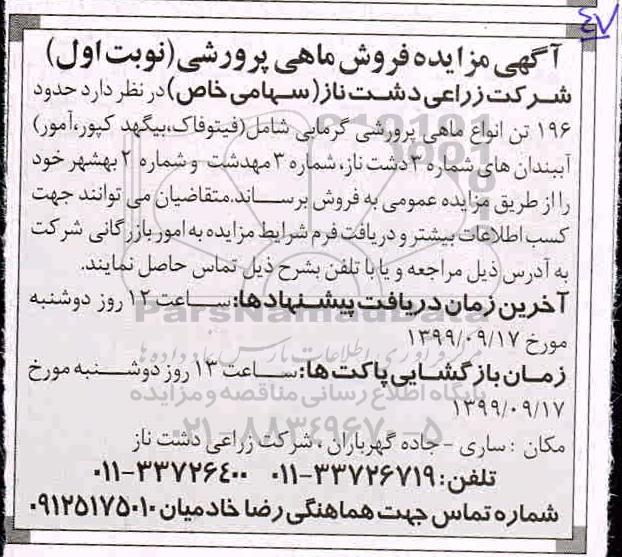 ۴۷
آگهی مزایده فروش ماهی پرورشی(نوبت اول)
شرکت زراعی دشت ناز(سهامی خاص)در نظر دارد حدود
۱۹۶ تن انواع ماهی پرورشی گرمابی شامل(فیتوفاک،بیگهد کپور،آمور)
آببندان های شماره ۳ دشت ناز، شماره ۳ مهدشت و شماره ۲ بهشهر خود
را از طریق مزایده عمومی به فروش برساند.متقاضیان می توانند جهت
کسب اطلاعات بیشتر و دریافت فرم شرایط مزایده به امور بازرگانی شرکت
به آدرس ذیل مراجعه و یا با تلفن بشرح ذیل تماس حاصل نمایند.
آخرین زمان دریافت پیشنهادها:ساعت ۱۲ روز دوشنبه
مورخ ۱۳۹۹/۰۹/۱۷
زمان بازگشایی پاکت ها:ساعت ۱۳ روز دوشنبه مورخ
۱۳۹۹/۰۹/۱۷
مکان : ساری -جاده گهرباران ، شرکت زراعی دشت ناز
تلفن: ۳۳۷۲۶۷۱۹-۰۱۱ ۳۳۷۲۶۴۰۰-۰۱۱
شماره تماس جهت هماهنگی رضا خادمیان ۰۹۱۲۵۱۷۵۰۱۰
ParsNamadData
پایگاه اطلاع رسانی مناقصه و مزایده
۰۲۱-۸۸۳۴۹۶۷۰-۵